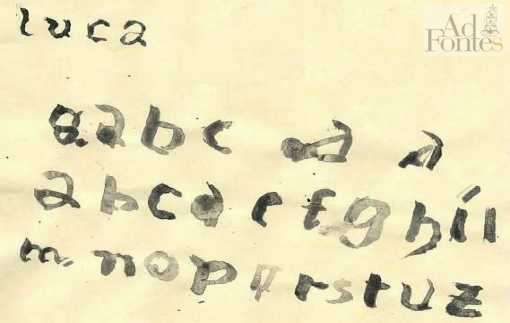 luca
Ad
Fontes
a a b c a a
a b c d e f g h i l
m n o p q r s t u z